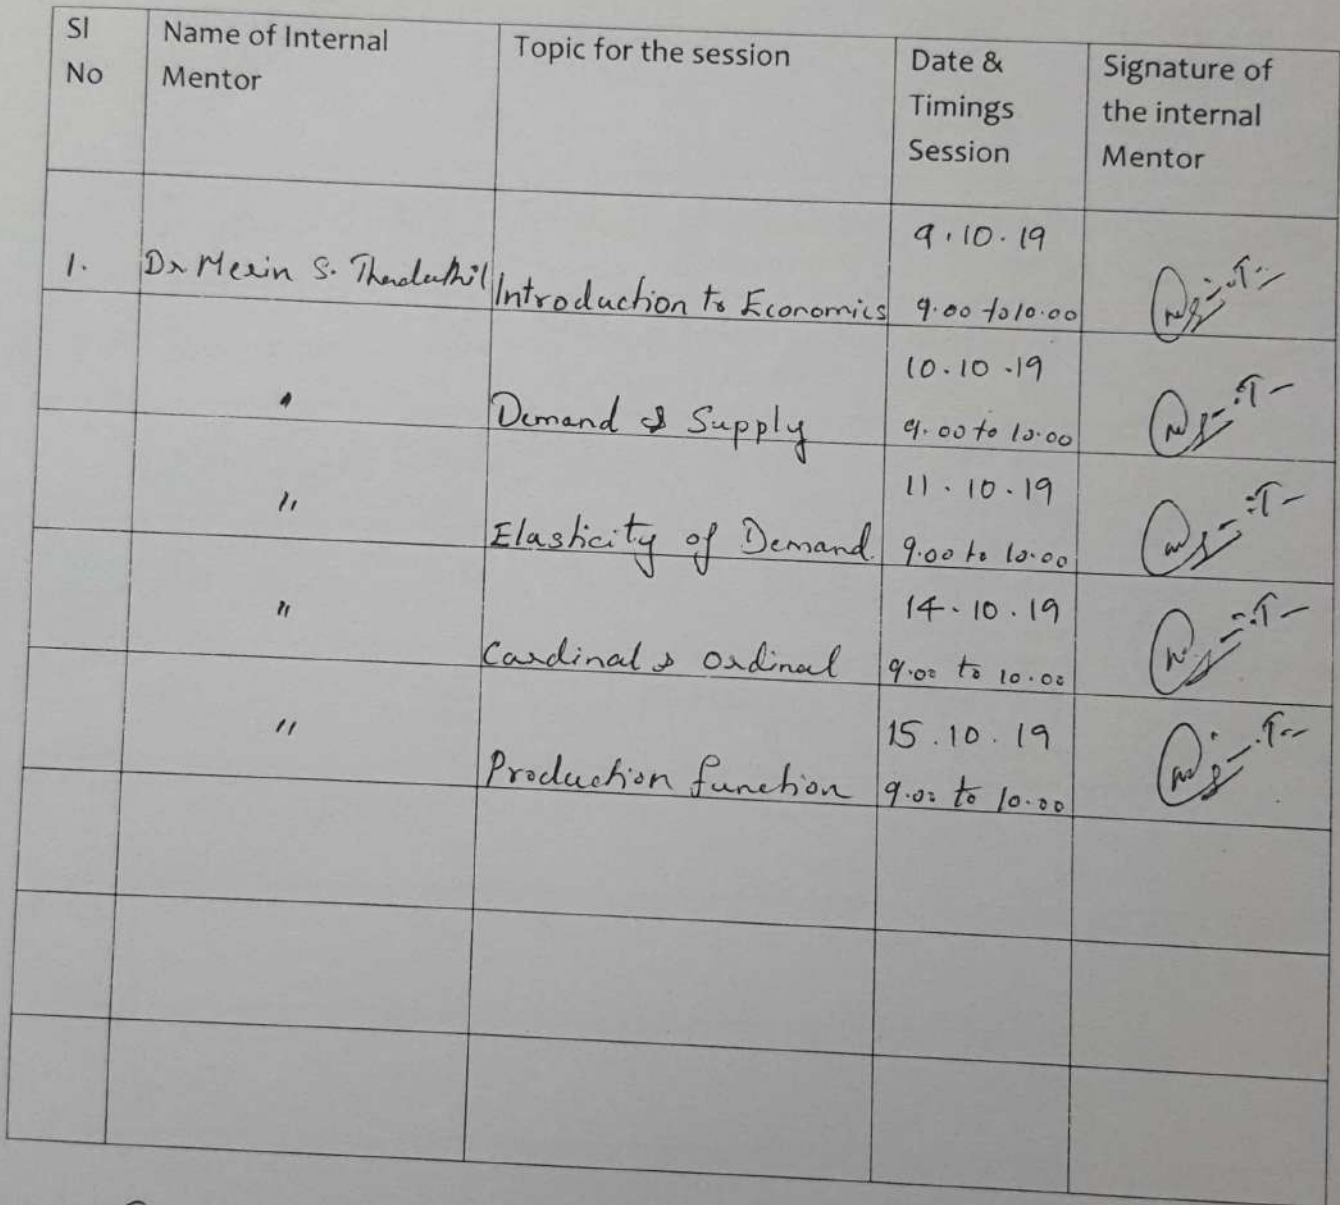 Sl No
Name of Internal Mentor
Topic for the session
Date & Timings Session
Signature of the internal Mentor
1. Dr Merin S. Introduction to Economics 9.10.19 9.00 to 10.00
" Demand & Supply 10.10.19 9.00 to 10.00
" Elasticity of Demand. 11.10.19 9.00 to 10.00
" Cardinal & Ordinal 14.10.19 9.00 to 10.00
" Production function 15.10.19 9.00 to 10.00